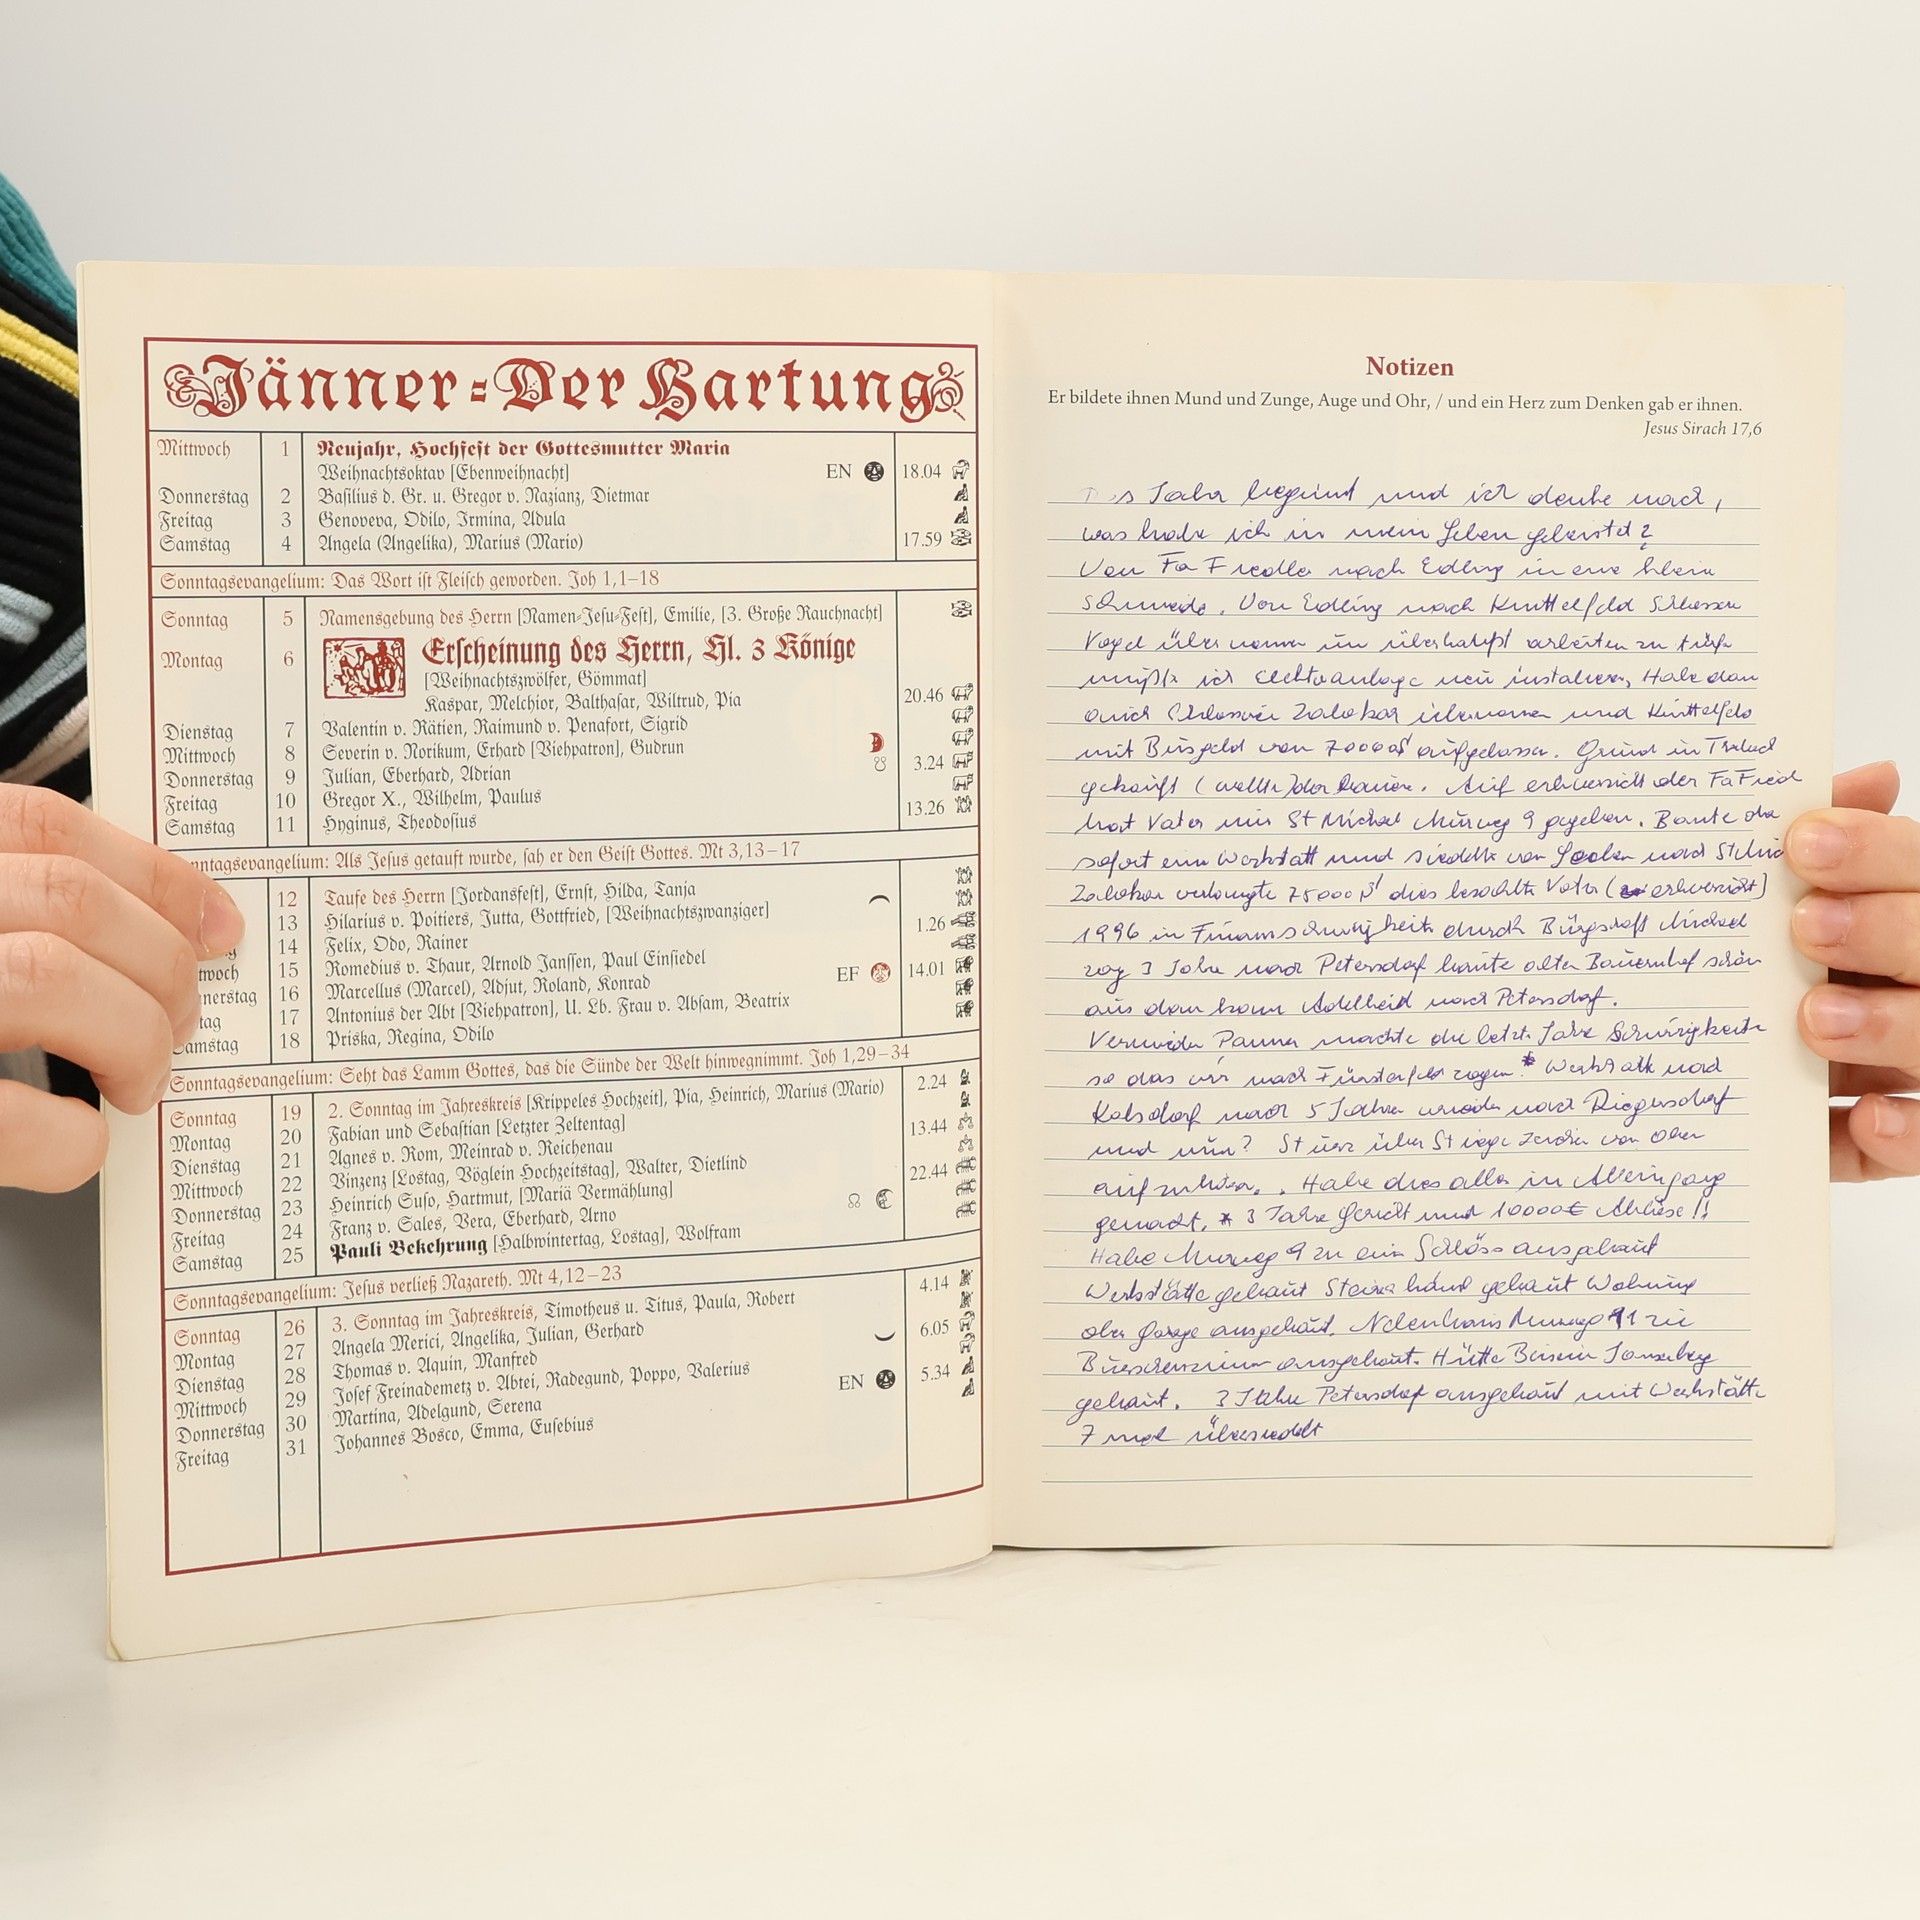 Jänner=Der Hartung
Mittwoch 1 Neujahr, Hochfest der Gottesmutter Maria
Weihnachtsoktav [Ebenweihnacht] EN 18.04
Donnerstag 2 Basilius d. Gr. u. Gregor v. Nazianz, Dietmar
Freitag 3 Genoveva, Odilo, Irmina, Adula
Samstag 4 Angela (Angelika), Marius (Mario) 17.59
Sonntagsevangelium: Das Wort ist Fleisch geworden. Joh 1,1–18
Sonntag 5 Namensgebung des Herrn [Namen-Jesu-Fest], Emilie, [3. Große Rauchnacht]
Montag 6 Erscheinung des Herrn, Hl. 3 Könige
[Weihnachtszwölfer, Gömmat]
Kaspar, Melchior, Balthasar, Wiltrud, Pia 20.46
Dienstag 7 Valentin v. Rätien, Raimund v. Penafort, Sigrid
Mittwoch 8 Severin v. Norikum, Erhard [Viehpatron], Gudrun
Donnerstag 9 Julian, Eberhard, Adrian 3.24
Freitag 10 Gregor X., Wilhelm, Paulus
Samstag 11 Hyginus, Theodosius 13.26
nntagsevangelium: Als Jesus getauft wurde, sah er den Geist Gottes. Mt 3,13–17
12 Taufe des Herrn [Jordansfest], Ernst, Hilda, Tanja
13 Hilarius v. Poitiers, Jutta, Gottfried, [Weihnachtszwanziger]
14 Felix, Odo, Rainer 1.26
twoch 15 Romedius v. Thaur, Arnold Janssen, Paul Einsiedel
nnerstag 16 Marcellus (Marcel), Adjut, Roland, Konrad EF 14.01
tag 17 Antonius der Abt [Viehpatron], U. Lb. Frau v. Absam, Beatrix
Samstag 18 Priska, Regina, Odilo
Sonntagsevangelium: Seht das Lamm Gottes, das die Sünde der Welt hinwegnimmt. Joh 1,29–34
Sonntag 19 2. Sonntag im Jahreskreis [Krippeles Hochzeit], Pia, Heinrich, Marius (Mario) 2.24
Montag 20 Fabian und Sebastian [Letzter Zeltentag]
Dienstag 21 Agnes v. Rom, Meinrad v. Reichenau 13.44
Mittwoch 22 Vinzenz [Lostag, Vöglein Hochzeitstag], Walter, Dietlind
Donnerstag 23 Heinrich Suso, Hartmut, [Mariä Vermählung] 22.44
Freitag 24 Franz v. Sales, Vera, Eberhard, Arno
Samstag 25 Pauli Bekehrung [Halbwintertag, Lostag], Wolfram
Sonntagsevangelium: Jesus verließ Nazareth. Mt 4,12–23
Sonntag 26 3. Sonntag im Jahreskreis, Timotheus u. Titus, Paula, Robert 4.14
Montag 27 Angela Merici, Angelika, Julian, Gerhard
Dienstag 28 Thomas v. Aquin, Manfred 6.05
Mittwoch 29 Josef Freinademetz v. Abtei, Radegund, Poppo, Valerius
Donnerstag 30 Martina, Adelgund, Serena EN 5.34
Freitag 31 Johannes Bosco, Emma, Eusebius
Notizen
Er bildete ihnen Mund und Zunge, Auge und Ohr, / und ein Herz zum Denken gab er ihnen.
Jesus Sirach 17,6
Jahr begint und ich denke nach,
was habe ich in mein Leben geleistet?
Von Fa Fiedler nach Edling in eine klein
Schmiede. Von Edling nach Knittelfeld Schlosser
Vogel übernomen um überhaupt arbeiten zu
mußte ich Elektroanlage neu instalieren, Habe dan
auch Zalokar übernomen und Knittelfeld
mit Busgeld von 70000S aufgelassen. Grund in
gekauft (wollte) dor bauen. Auf der Fa Fied
hat Vater mir St Michael Murweg 9 gegeben. Baute da
sofort eine Werkstatt und siedelte von nach St
Zalokar verlangte 75000 S dies bezahlte Vater
1996 in Finanzschwirigkeit durch Bürgschaft Michael
zog 3 Jahre nach Petersdorf baute alten Bauernhof schön
aus dan kam Adelheid nach Petersdorf.
Vermieter machte die letzt. Jahre Schwirigkeiten
so das wir nach Fürstenfeld zogen.* Werkstatt nach
nach 5 Jahren wieder nach Riegersdorf
und nun? Sturz über Stiege von oben
Habe dies alles in Alleingang
gemacht. * 3 Jahre Gericht und 10000€ Ablöse!!
Habe Murweg 9 zu ein Schlöss ausgebaut
Werkstätte gebaut gebaut Wohnung
ober Garage ausgebaut. Nebenhaus Murweg 11 zu
ausgebaut. Hütte
gebaut. 3 Jahre Petersdorf ausgebaut mit Werkstätte
7 mal übersiedelt